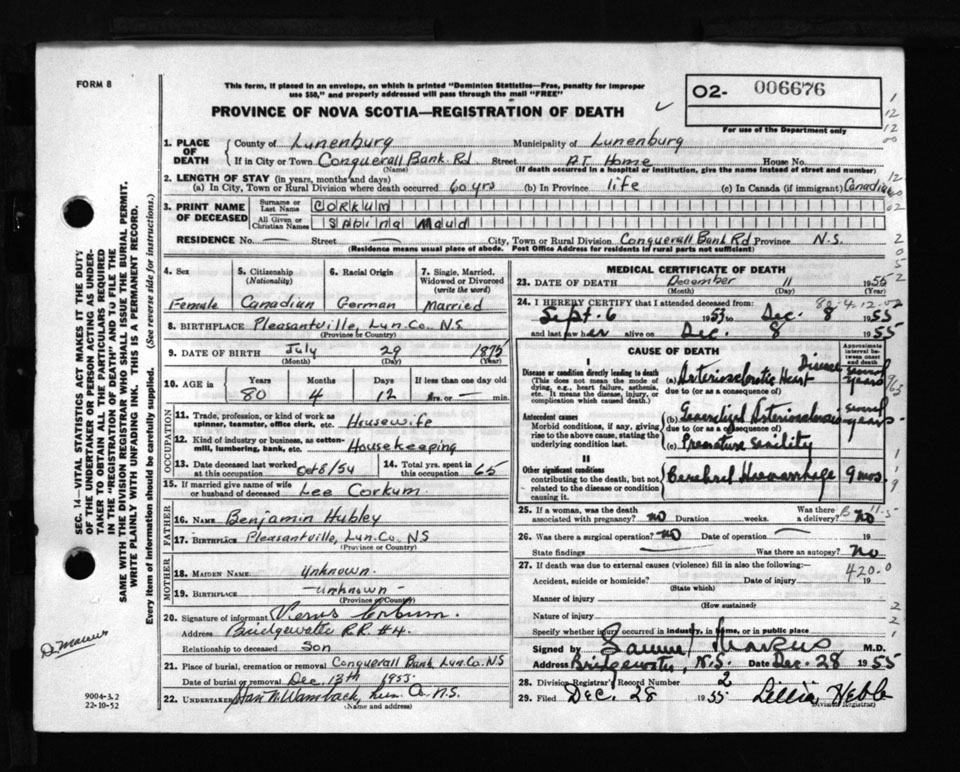 FORM 8
This form, if placed in an envelope, on which is printed "Dominion Statistics—Free, penalty for improper
use $50," and properly addressed will pass through the mail "FREE"
PROVINCE OF NOVA SCOTIA—REGISTRATION OF DEATH
O2- 006676
For use of the Department only
1. PLACE OF DEATH
County of Lunenburg Municipality of Lunenburg
If in City or Town Conquerall Bank Rd. Street AT Home House No.
(Name) (If death occurred in a hospital or institution, give the name instead of street and number)
2. LENGTH OF STAY (in years, months and days)
(a) In City, Town or Rural Division where death occurred 60 yrs (b) In Province life (c) In Canada (if immigrant) Canadian
3. PRINT NAME OF DECEASED
Surname or Last Name CORKUM
All Given or Christian Names Sabina Mauld
RESIDENCE No. — Street — City, Town or Rural Division Conquerall Bank Rd Province N.S.
(Residence means usual place of abode. Post Office Address for residents in rural parts not sufficient)
4. Sex
Female
5. Citizenship (Nationality)
Canadian
6. Racial Origin
German
7. Single, Married, Widowed or Divorced (write the word)
Married
8. BIRTHPLACE Pleasantville, Lun.Co. N.S.
(Province or Country)
9. DATE OF BIRTH July 29 1875
(Month) (Day) (Year)
10. AGE in Years Months Days If less than one day old
80 4 12 hrs. or — min.
OCCUPATION
11. Trade, profession, or kind of work as spinner, teamster, office clerk, etc. Housewife
12. Kind of industry or business, as cotton-mill, lumbering, bank, etc. Housekeeping
13. Date deceased last worked at this occupation Oct 8/54 14. Total yrs. spent in this occupation 65
15. If married give name of wife or husband of deceased Lee Corkum
FATHER
16. NAME Benjamin Hubley
17. BIRTHPLACE Pleasantville, Lun.Co. NS
(Province or Country)
MOTHER
18. MAIDEN NAME Unknown
19. BIRTHPLACE —unknown—
(Province or Country)
20. Signature of informant Corkum
Address Bridgewater R.R. #4.
Relationship to deceased Son
21. Place of burial, cremation or removal Conquerall Bank Lun.Co. NS
Date of burial or removal Dec. 13th 1955
22. UNDERTAKER Wamback, Lun. Co. N.S.
(Name and address)
MEDICAL CERTIFICATE OF DEATH
23. DATE OF DEATH December 11 1955
(Month) (Day) (Year)
24. I HEREBY CERTIFY that I attended deceased from
Sept. 6 1953 to Dec. 8 1955
and last saw her alive on Dec. 8 1955
CAUSE OF DEATH
Approximate interval between onset and death
I
Disease or condition directly leading to death
(This does not mean the mode of dying, e.g., heart failure, asthma, etc. It means the disease, injury, or complication which caused death.)
(a) Arteriosclerotic Heart Disease several years
due to (or as a consequence of)
Antecedent causes
Morbid conditions, if any, giving rise to the above cause, stating the underlying condition last.
(b) Generalized Arteriosclerosis several years
due to (or as a consequence of)
(c) Premature Senility
II
Other significant conditions contributing to the death, but not related to the disease or condition causing it.
Cerebral Haemorrhage 9 mos.
25. If a woman, was the death associated with pregnancy? no Duration weeks. Was there a delivery? no
26. Was there a surgical operation? no Date of operation — 19
State findings — Was there an autopsy? No
27. If death was due to external causes (violence) fill in also the following:— 420.0
Accident, suicide or homicide? Date of injury 19
(State which)
Manner of injury
(How sustained)
Nature of injury
Specify whether injury occurred in industry, in home, or in public place
Signed by M.D.
Address Bridgewater, N.S. Date Dec. 28 1955
28. Division Registrar's Record Number 2
29. Filed Dec. 28 1955 Lillia Hebb
(Division Registrar)
SEC. 14—VITAL STATISTICS ACT MAKES IT THE DUTY
OF THE UNDERTAKER OR PERSON ACTING AS UNDER-
TAKER TO OBTAIN ALL THE PARTICULARS REQUIRED
IN THE "REGISTRATION OF DEATH" AND TO FILE THE
SAME WITH THE DIVISION REGISTRAR WHO SHALL ISSUE THE BURIAL PERMIT.
WRITE PLAINLY WITH UNFADING INK. THIS IS A PERMANENT RECORD.
Every item of information should be carefully supplied. (See reverse side for instructions.)
9004-3.2
22-10-52